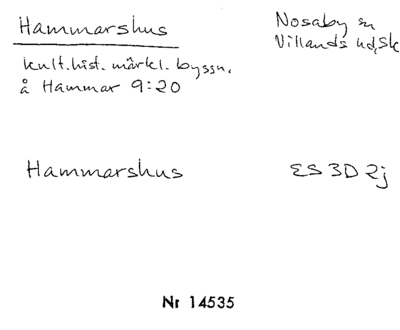 Hammarshus
Nosaby sn
Villands hd, Sk
kult.hist. märkl. byggn.
å Hammar 9:20
Hammarshus
ES 3D 2j
Nr 14535